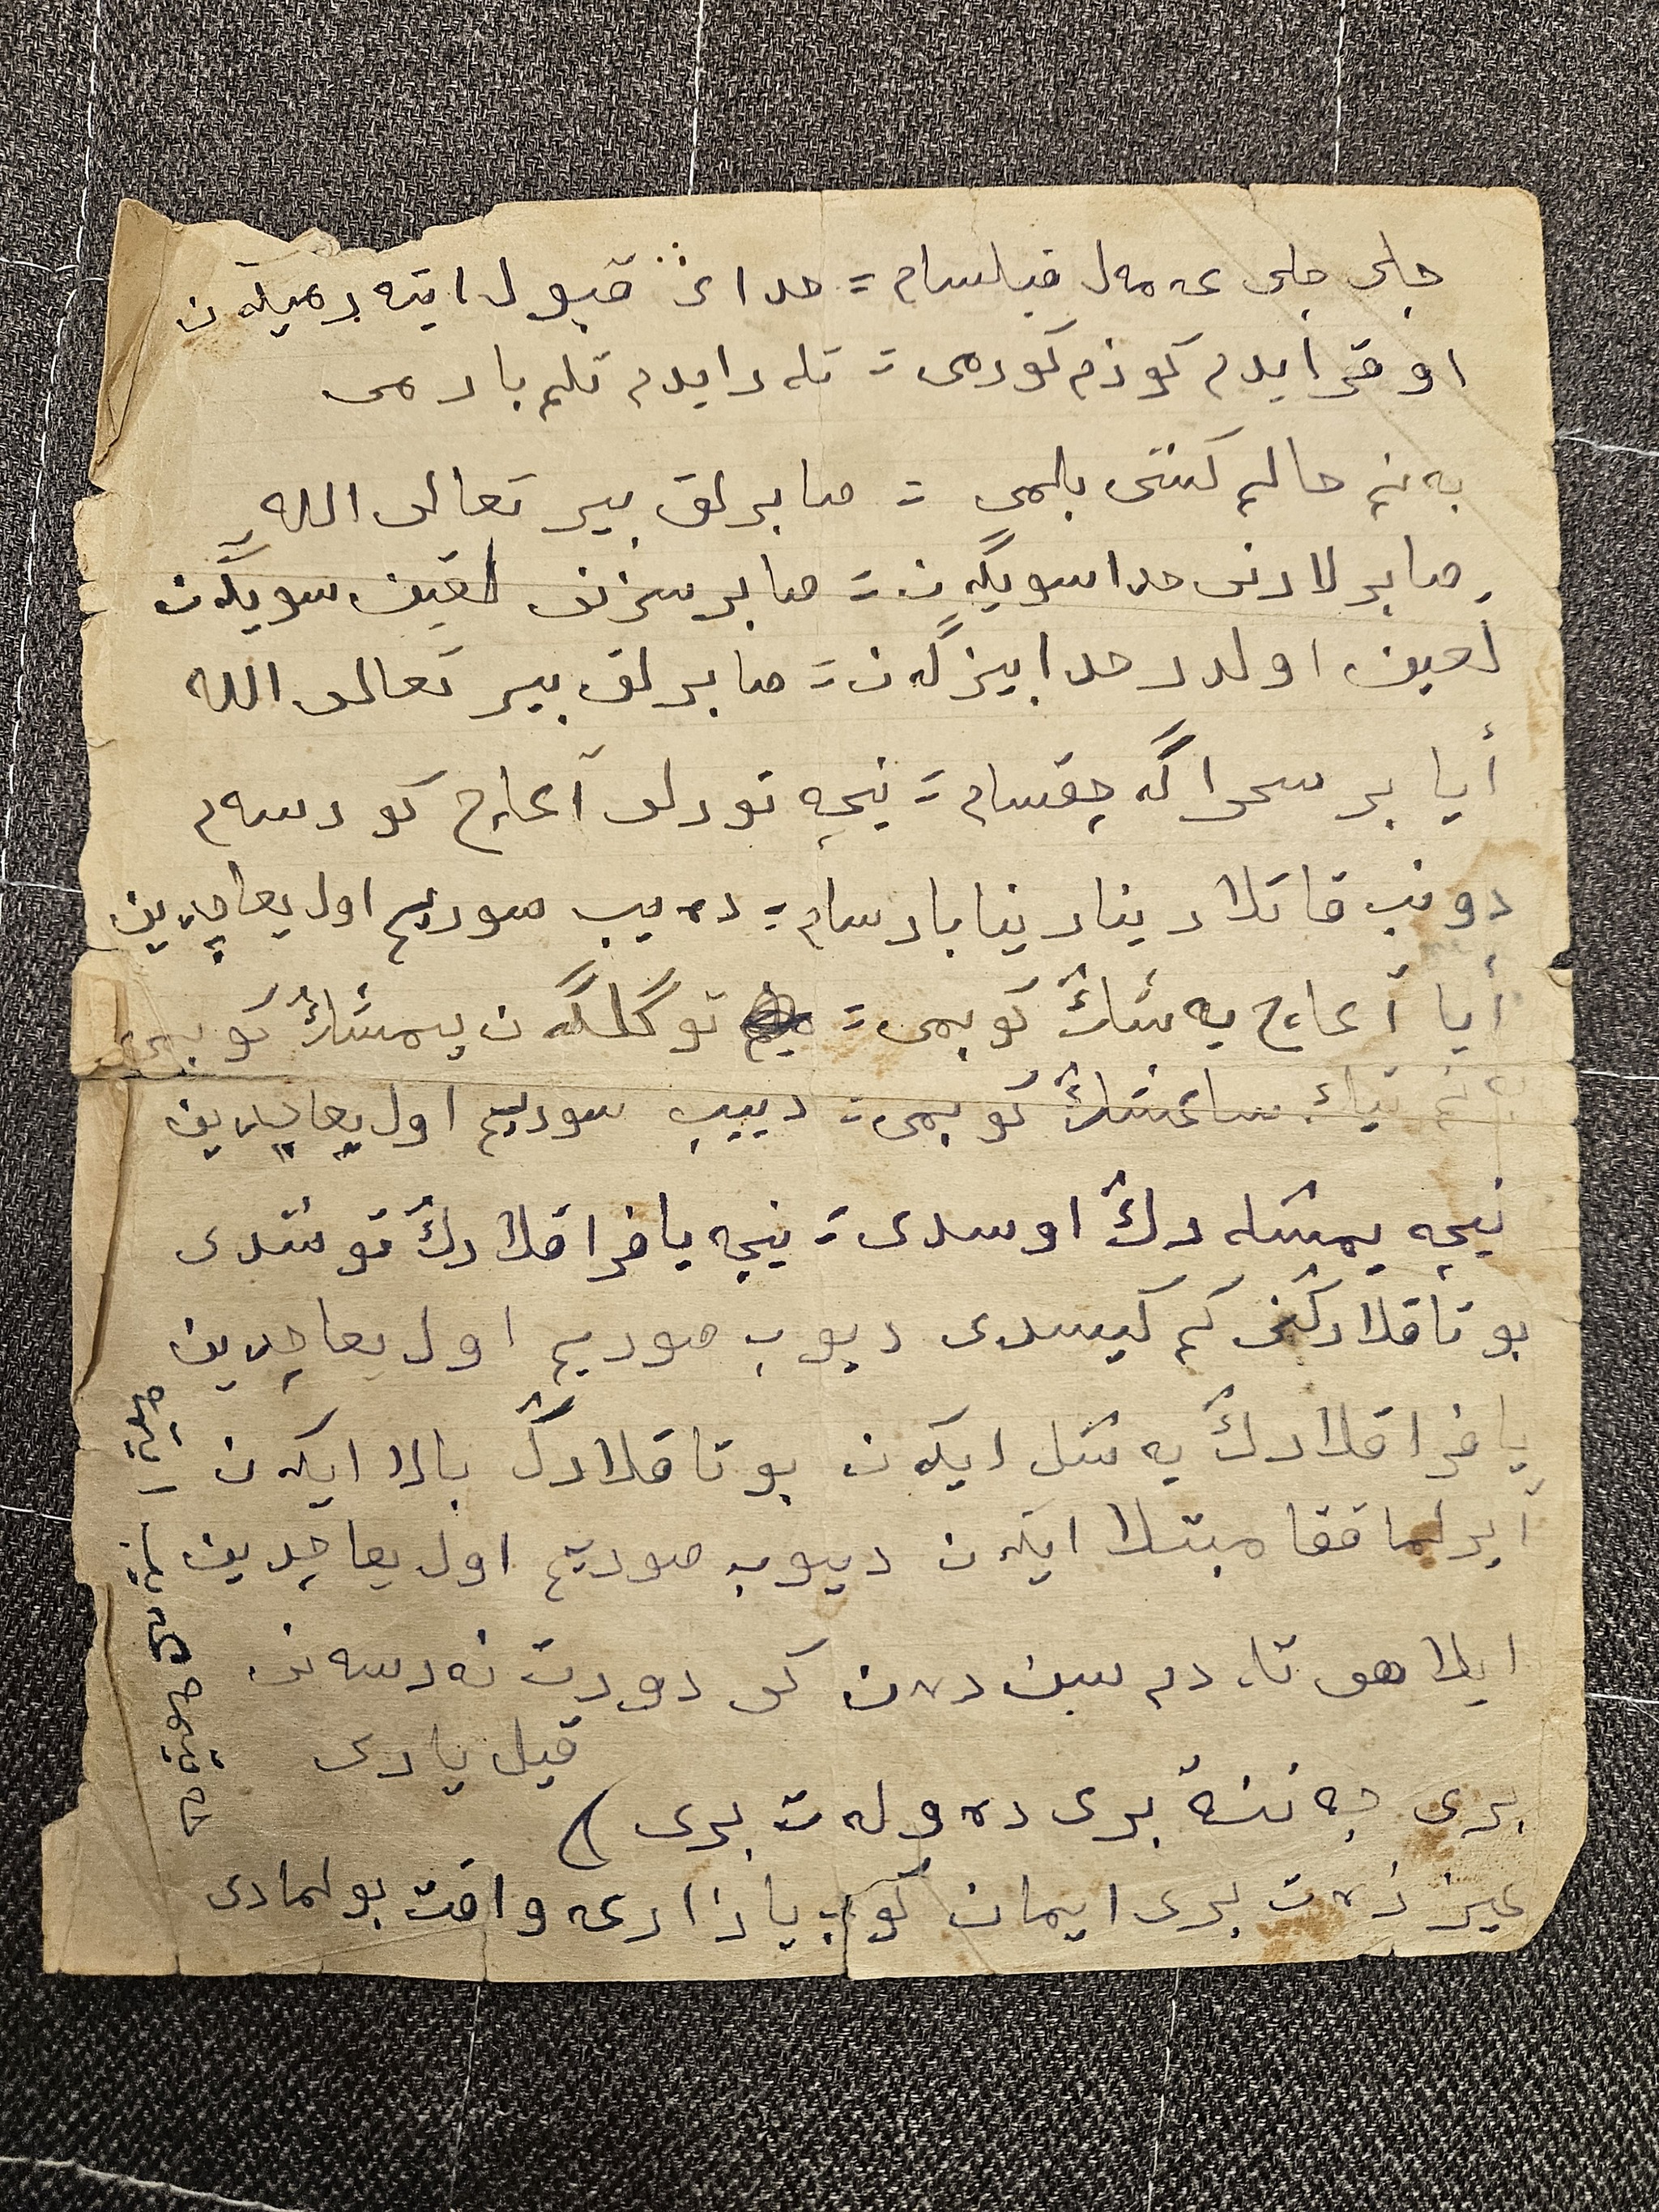 جلی جلی عەمەل قیلسام = حدای قبول ایتەرمیکەن
اوقر ایدم کوزم کورمی = تلەر ایدم تلم بارمی
بەنم حالم کنتی بلمی = صابرلق بیر تعالی الله
صابرلارنی حدا سویگەن = صابرسزنی لعین سویگەن
لعین اولدر حدا بیزگەن = صابرلق بیر تعالی الله
أیا بر سحراگە چقسام = نیچە تورلی آعاچ کورسەم
دونب قاتلار ینارینا بارسام = دەیب صوریم اول یعاچدین
أیا آعاچ یەشڭ کوبمی = توگلگەن یمشڭ کوبمی
بەنم تیك ساعشڭ کوبمی = دییب سوریم اول یعاچدین
نیچە یمشلەرڭ اوسدی = نیچە یافراقلارڭ توشدی
بوتاقلارڭنی کم کیسدی دیوب صوریم اول یعاچدین
یافراقلارڭ یەشل ایکەن بوتاقلارڭ بالا ایکەن
آیرلماققا مبتلا ایکەن دیوب صوریم اول یعاچدین
ایلاهی تا، دم سین دەن کی دورت نەرسەنی
قیل یاری
بری جەننة بری دەولەت بری
عیززەت بری ایمان کوب یازارعە واقت بولمادی